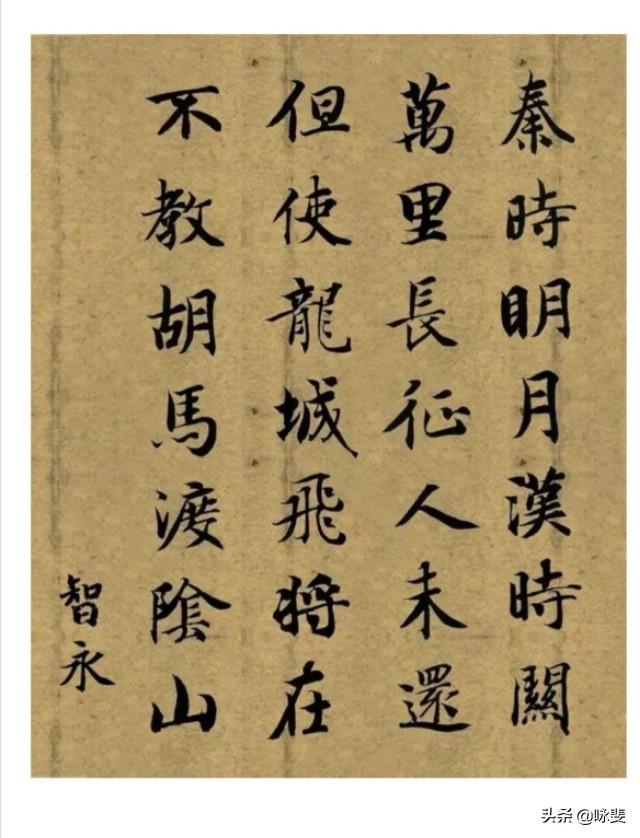 秦時明月漢時關
萬里長征人未還
但使龍城飛将在
不教胡馬渡陰山
智永
头条 @咏斐